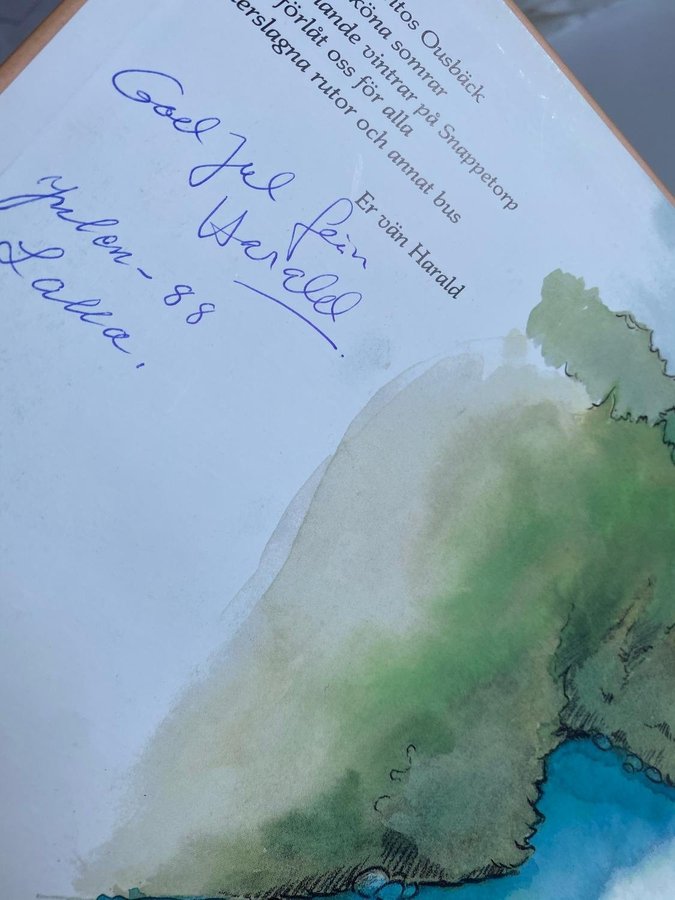 itos Ousbäck
köna somrar
lande vintrar på Snappetorp
förlåt oss för alla
erslagna rutor och annat bus
Er vän Harald
God Jul från
Harald
-88